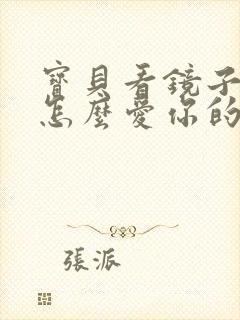 寶貝看鏡子
怎麼愛你的
張派